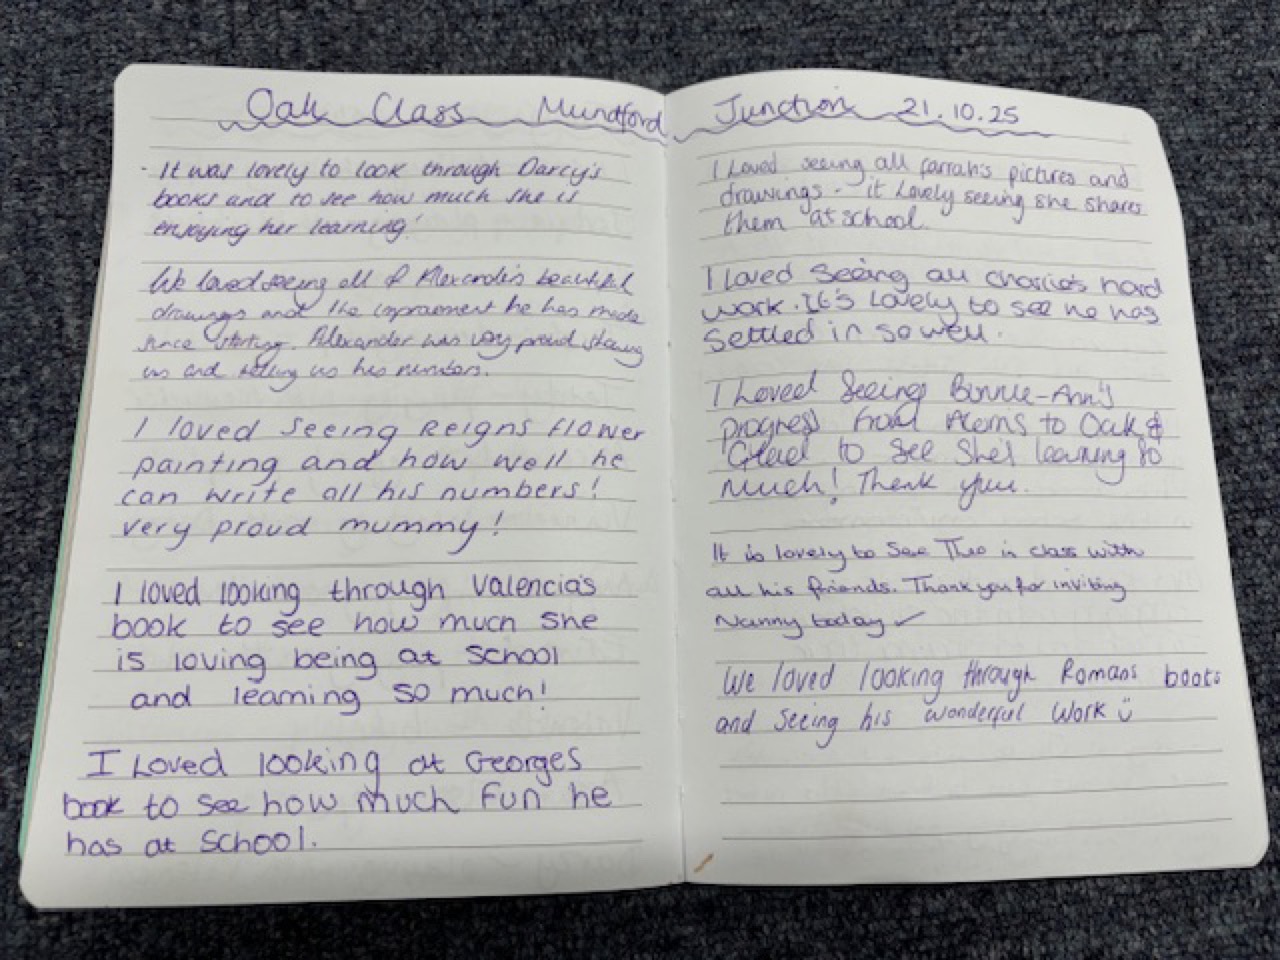 Oak Class Mundford Junction 21.10.25
- It was lovely to look through Darcy's
books and to see how much she is
enjoying her learning!
We loved seeing all of Alexander's beautiful
drawings and the improvement he has made
since starting. Alexander was very proud showing
us and telling us his numbers.
I loved seeing Reigns flower
painting and how well he
can write all his numbers!
Very proud mummy!
I loved looking through Valencia's
book to see how much she
is loving being at school
and learning so much!
I Loved looking at Georges
book to see how much fun he
has at school.
I Loved seeing all Farrah's pictures and
drawings - it Lovely seeing she shares
them at school.
I loved seeing all Charlie's hard
work. It's Lovely to see he has
settled in so well.
I Loved Seeing Bonnie-Ann's
progress from Acorns to Oak &
Glad to see She's learning so
much! Thank you.
It is lovely to see Theo in class with
all his friends. Thank you for inviting
Nanny today ✓
We loved looking through Romans books
and seeing his wonderful work ü